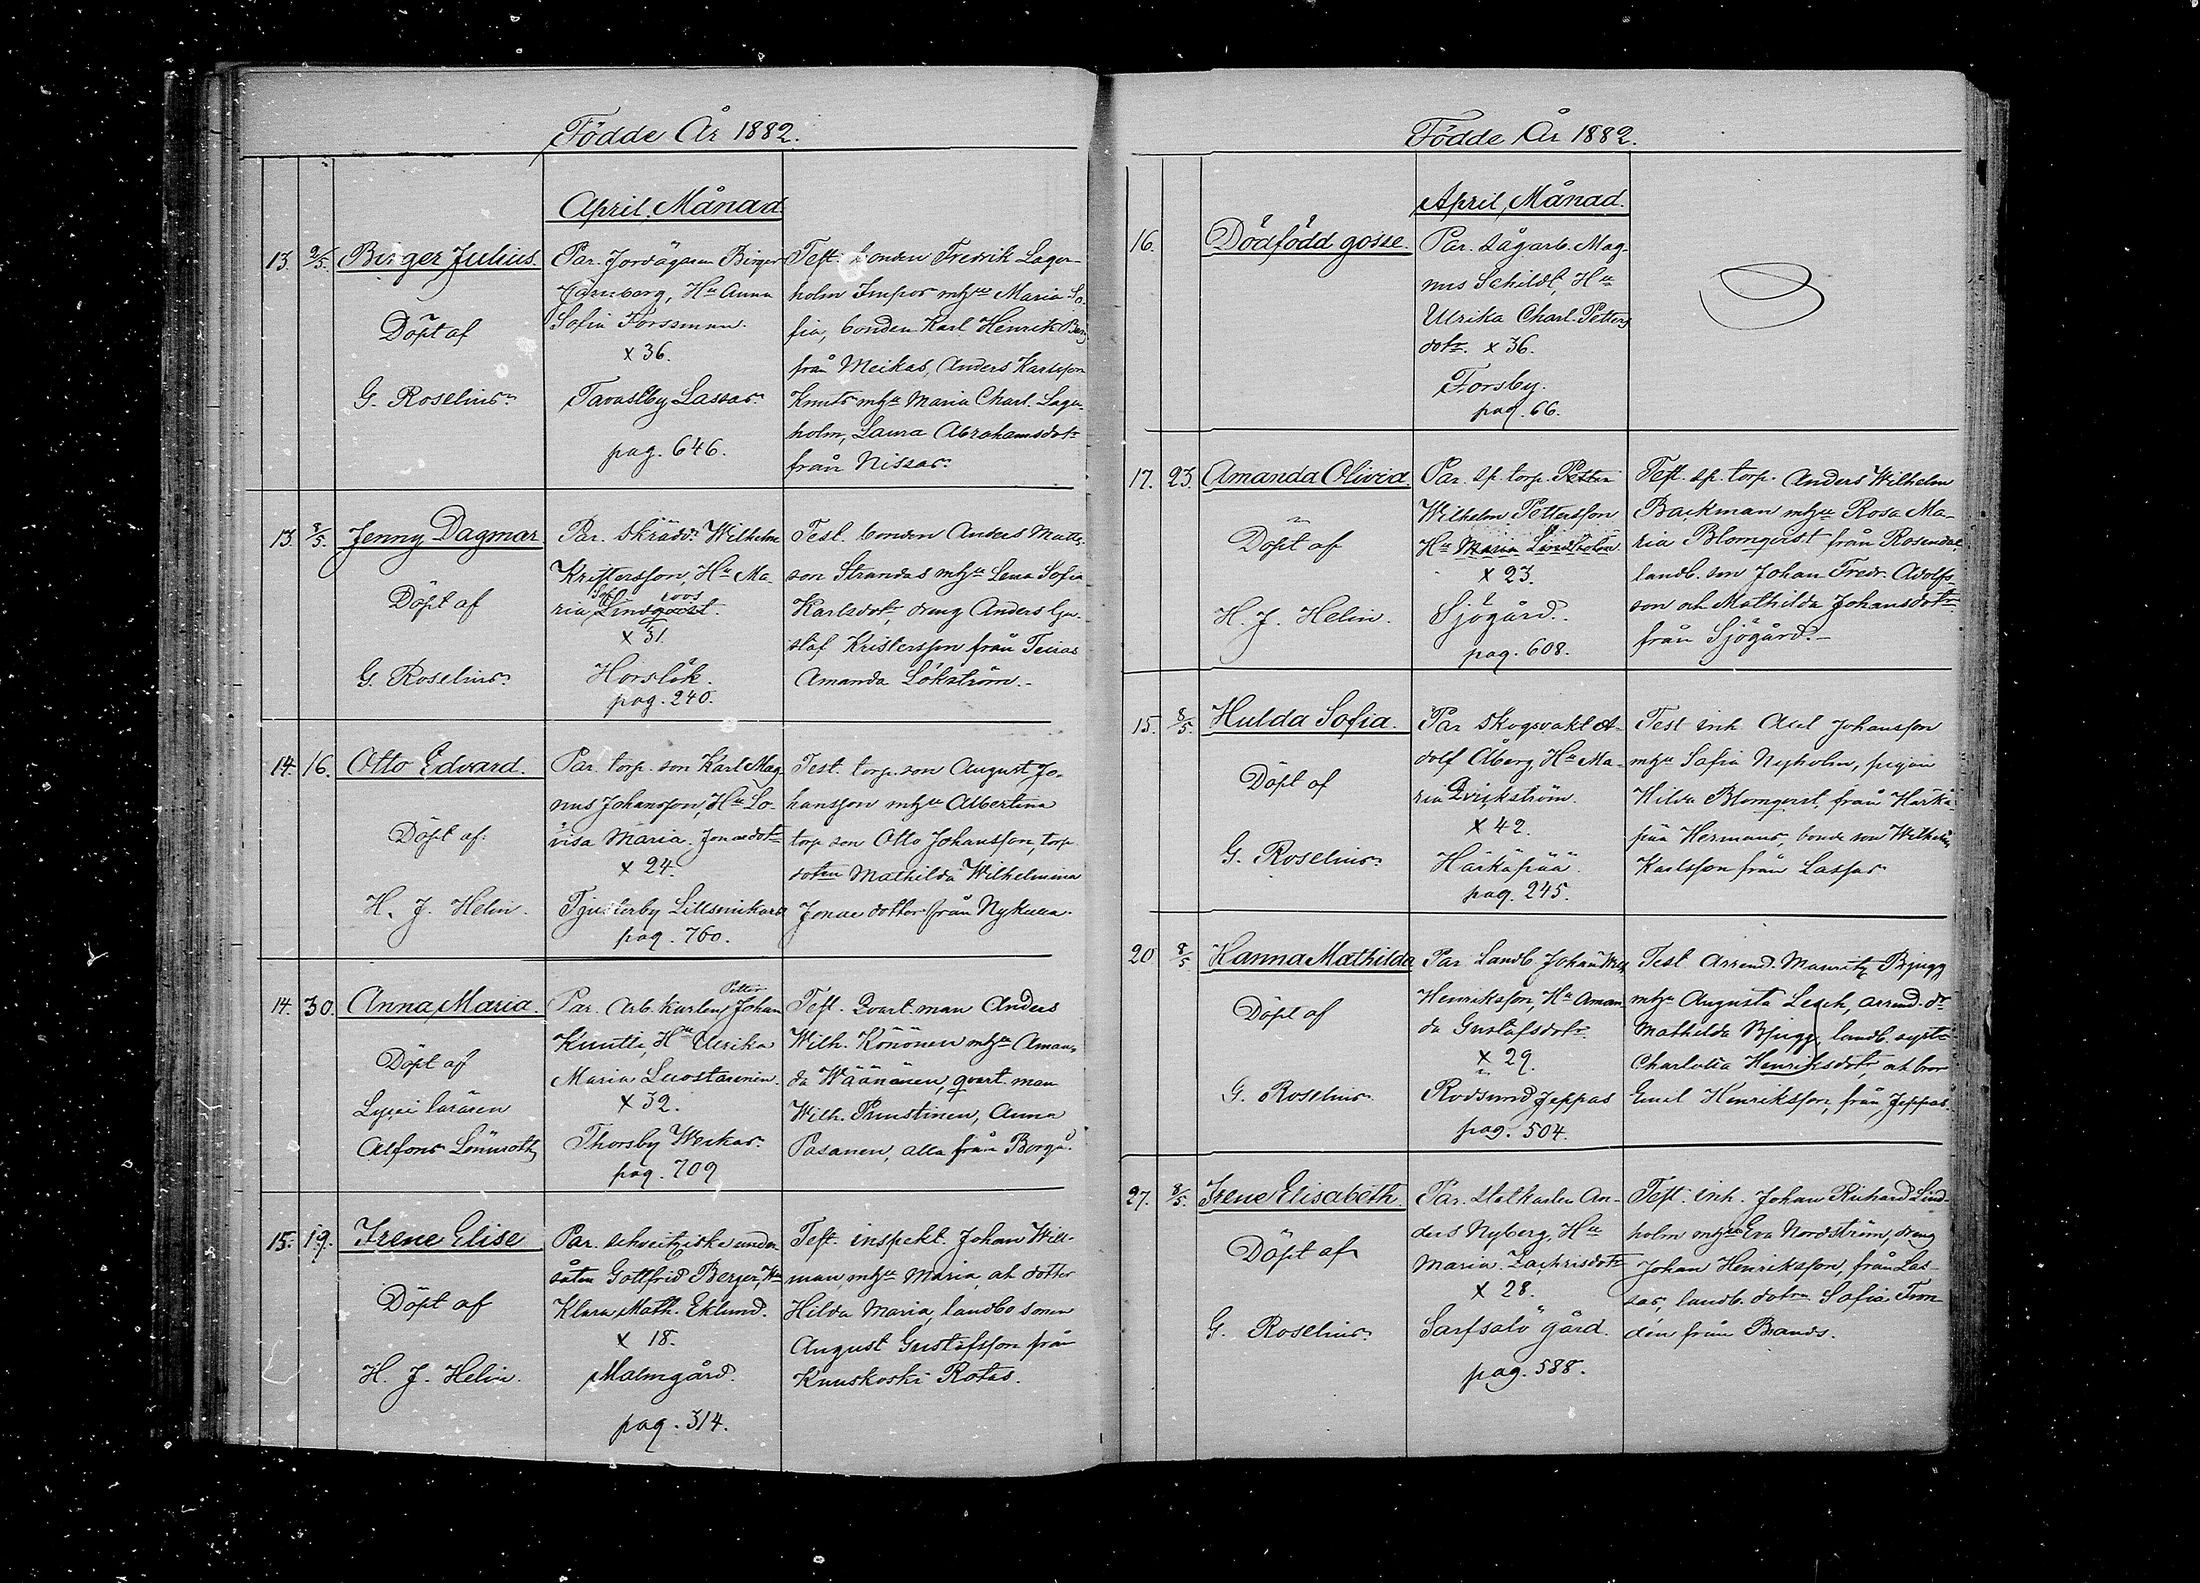 Födde År 1882.
April Månad
13. 2/5. Birger Julius.
Döpt af
G. Roselius.
Par. Jordägaren Birger
Färnberg, Hu Anna
Sofia Forssman.
x 36.
Tavastby Lassas.
pag. 646.
Test. bonden Fredrik Lager-
holm Impos mhu Maria So-
fia, bonden Karl Henrik Berg
från Meikas, Anders Karlsson
Knuts mhu Maria Charl. Lager-
holm, Laura Abrahamsdotr
från Nissas.
13. 8/5. Jenny Dagmar
Döpt af
G. Roselius.
Par. Skrädd. Wilhelm
Kristersson, Hu Ma-
ria Lindqvist.
x 31
Horslök.
pag. 240.
Test. bonden Anders Matts-
son Strandas mhu Lena Sofia
Karlsdotr, dreng Anders Gu-
staf Kristersson från Teiras
Amanda Lökström.
14. 16. Otto Edvard.
Döpt af.
H. J. Helin.
Par. torp. son Karl Mag-
nus Johansson, Hu Lo-
visa Maria Jonaedotr
x 24.
Tjusterby Lillsmikars
pag. 760.
Test. torp. son August Jo-
hansson mhu Albertina
torp son Otto Johansson, torp
dotren Mathilda Wilhelmina
Jonae dotter från Nykulla.
14. 30. Anna Maria.
Döpt af
Lysei läraren
Alfons Lönnroth
Petter
Par. Arb. karlen Johan
Knutti, Hu Ulrika
Maria Luostarinen.
x 32.
Thorsby Weckas.
pag. 709
Test. Qvart. man Anders
Wilh. Könönen mhu Aman-
da Wäänänen, qvart. man
Wilh. Puustinen, Anna
Pasanen, alla från Borgå.
15. 19. Irene Elise
Döpt af
H. J. Helin.
Par. schveitziske under-
såten Gottfrid Berger, Hu
Klara Math. Eklund.
x 18.
Malmgård.
pag. 314.
Test. inspekt. Johan Will-
man, mhu Maria, och dotter
Hilda Maria, landbo sonen
August Gustafsson från
Kuuskoski Rotas.
Födde År 1882.
April Månad.
16. Dödfödd gosse.
Par. sågarb. Mag-
nus Schildt, Hu
Ulrika Charl. Petters
dotr. x 36.
Forsby.
pag. 66.
17. 23. Amanda Olivia.
Döpt af
H. J. Helin.
Par. sp. torp. Petter
Wilhelm Pettersson
Hu Maria Lindholm
x 23.
Sjögård.
pag. 608.
Test. sp. torp. Anders Wilhelm
Backman mhu Rosa Ma-
ria Blomqvist från Rosendal,
landb. son Johan Fredr. Adolfs-
son och Mathilda Johansdotr
från Sjögård.
15. 8/5. Hulda Sofia.
Döpt af
G. Roselius.
Par Skogsvakt A-
dolf Åberg, Hu Ma-
ria Qvickström.
x 42.
Härkäpää.
pag. 245.
Test inh. Axel Johansson
mhu Sofia Nyholm, pigan
Hilda Blomqvist från Härkä-
pää Hermans, bonde son Wilhelm
Karlsson från Lassas
20. 8/5 Hanna Mathilda
Döpt af
G. Roselius.
Par Landb. Johan Wilh
Henriksson, Hu Aman-
da Gustafsdotr.
x 29.
Rodsund Jeppas
pag. 504.
Test. Arrend. Mauritz Bjugg
mhu Augusta Lesch, arrend. dr
Mathilda Bjugg, landb. systr
Charlotta Henriksdotr, och bror
Emil Henriksson, från Jeppas.
27. 8/5. Irene Elisabeth.
Döpt af
G. Roselius.
Par. Stalkarlen An-
ders Nyberg, Hu
Maria Zachrisdotr
x 28.
Sarfsalö gård.
pag. 588.
Test. inh. Johan Richard Lind-
holm mhu Eva Nordström, dreng
Johan Henriksson, från Las-
sas, landb. dotrn Sofia Fron-
dén från Brands.